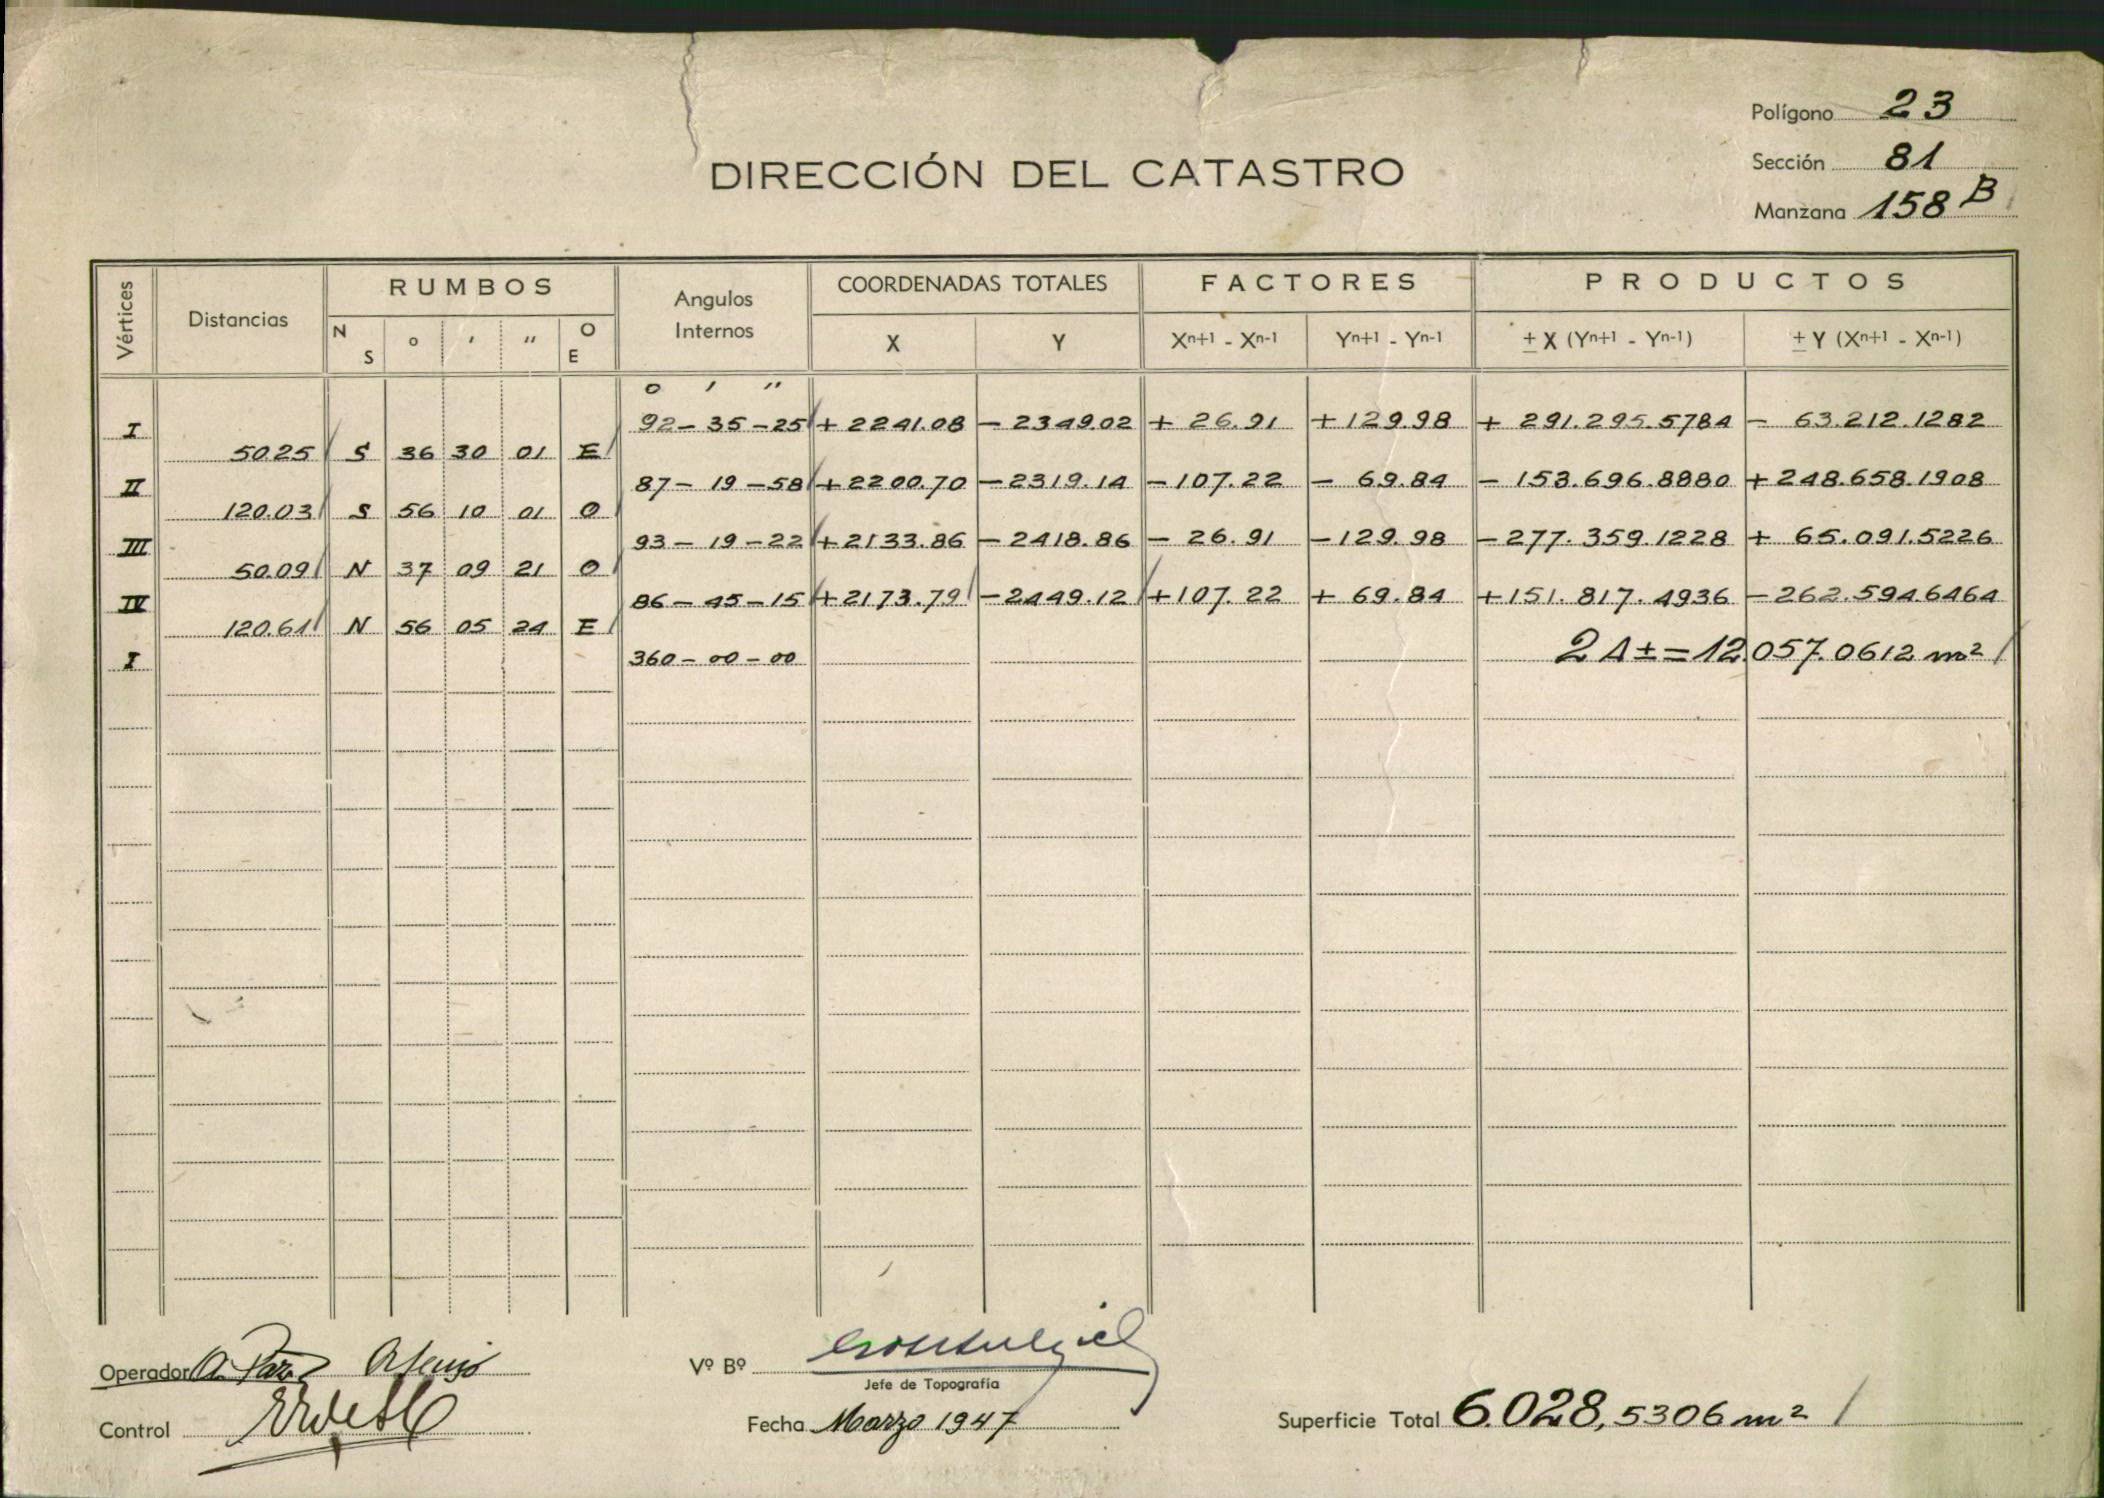 Polígono 23
DIRECCIÓN DEL CATASTRO
Sección 81
Manzana 158 B
Vértices Distancias RUMBOS Angulos Internos COORDENADAS TOTALES FACTORES PRODUCTOS
N S ° ' " O E X Y Xn+1 - Xn-1 Yn+1 - Yn-1 ± X (Yn+1 - Yn-1) ± Y (Xn+1 - Xn-1)
° ' "
I 92-35-25 + 2241.08 - 2349.02 + 26.91 +129.98 + 291.295.5784 - 63.212.1282
50.25 S 36 30 01 E
II 87-19-58 +2200.70 -2319.14 -107.22 - 69.84 - 153.696.8880 +248.658.1908
120.03 S 56 10 01 O
III 93-19-22 +2133.86 -2418.86 - 26.91 -129.98 -277.359.1228 + 65.091.5226
50.09 N 37 09 21 O
IV 86-45-15 +2173.79 -2449.12 +107.22 + 69.84 +151.817.4936 -262.594.6464
120.61 N 56 05 24 E
I 360-00-00 2A±=12.057.0612 m²
Operador
Vº Bº
Jefe de Topografía
Control
Fecha Marzo 1947
Superficie Total 6.028,5306 m²